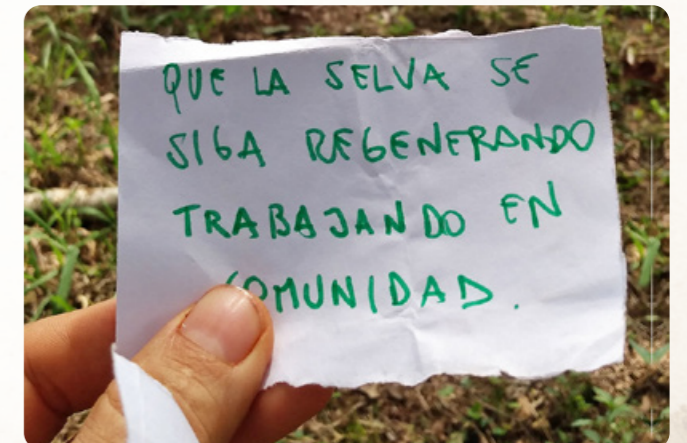 QUE LA SELVA SE
SIGA REGENERANDO
TRABAJANDO EN
COMUNIDAD.